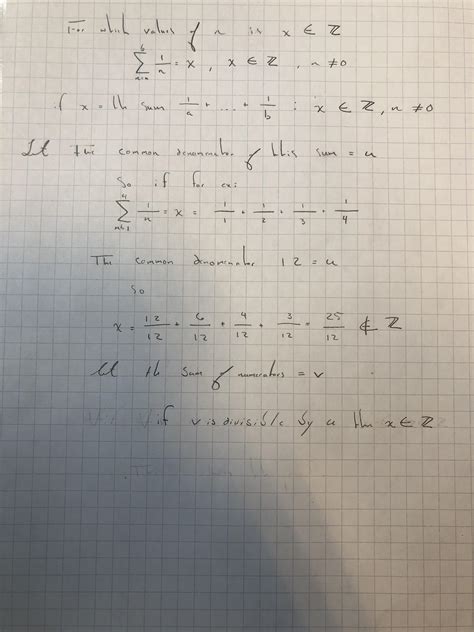 For which values of n is x ∈ ℤ
b ∑ n=a 1/n = x , x ∈ ℤ , n ≠ 0
if x = the sum 1/a + ... + 1/b : x ∈ ℤ, n ≠ 0
Let the common denominator of this sum = u
So if for ex:
4 ∑ n=1 1/n = x = 1/1 + 1/2 + 1/3 + 1/4
The common denominator 12 = u
so
x = 12/12 + 6/12 + 4/12 + 3/12 = 25/12 ∉ ℤ
let the sum of numerators = v
if v is divisible by u then x ∈ ℤ